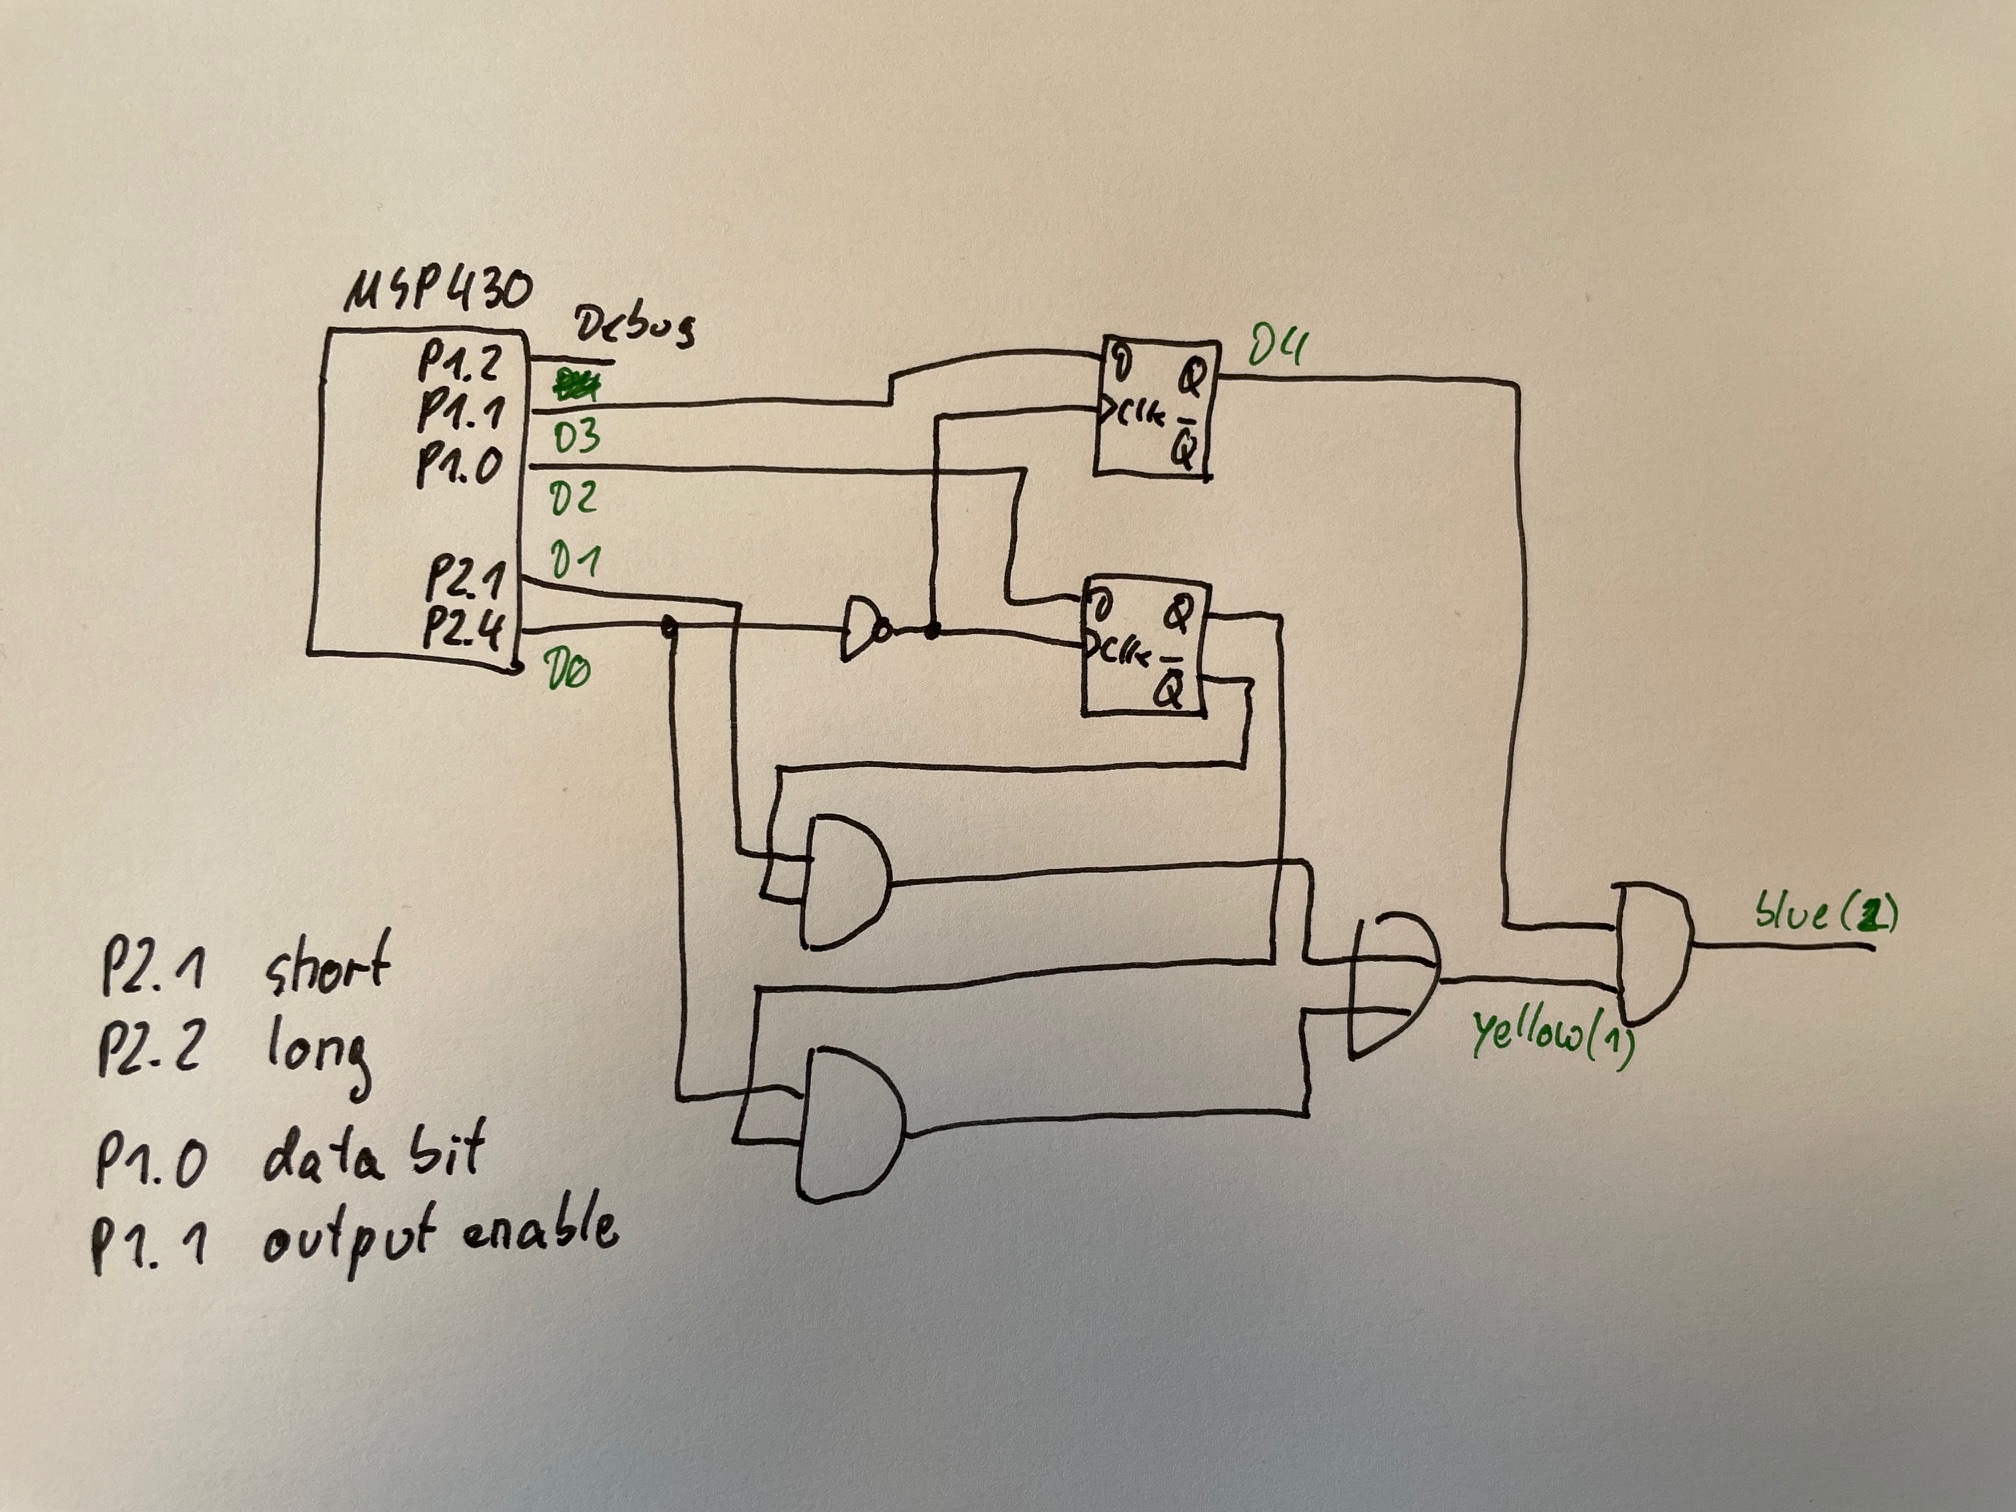 MSP430
Debug
P1.2
P1.1
D3
P1.0
D2
D1
P2.1
P2.4
D0
D Q
Clk Q̅
D4
D Q
Clk Q̅
blue(2)
yellow(1)
P2.1 short
P2.2 long
P1.0 data bit
P1.1 output enable